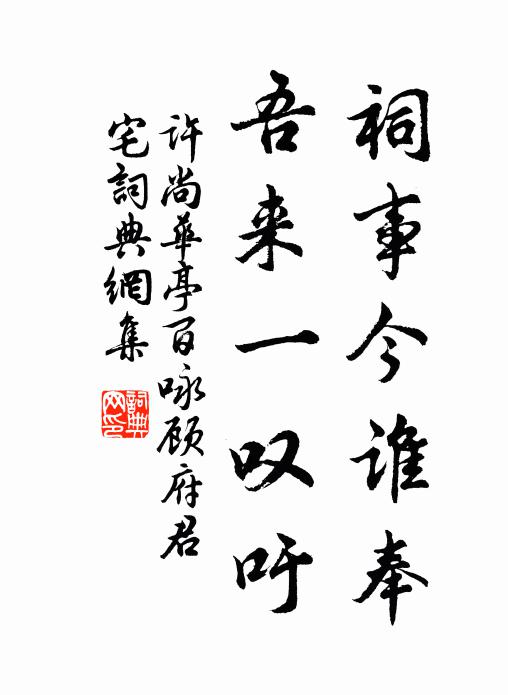 祠事今谁奉
吾来一叹吁
许尚華亭百咏顾府君
宅詞典網集
詞典网印